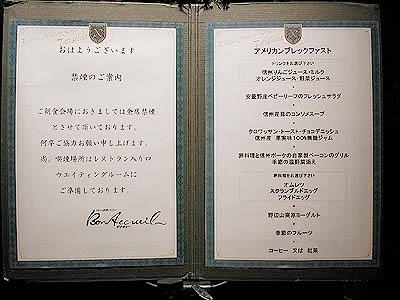 おはようございます
禁煙のご案内
ご朝食会場におきましては全席禁煙
とさせて頂いております。
何卒ご協力お願い申し上げます。
尚、喫煙場所はレストラン入り口
ウエイティングルームに
ご準備しております。
Bon Accueil
アメリカンブレックファスト
ドリンクをお選び下さい
信州りんごジュース・ミルク
オレンジジュース・野菜ジュース
安曇野産ベビーリーフのフレッシュサラダ
信州産茸のコンソメスープ
クロワッサン・トースト・チョコデニッシュ
信州産 果実味100%無糖ジャム
卵料理と信州ポークの自家製ベーコンのグリル
季節の温野菜添え
卵料理をお選び下さい
オムレツ
スクランブルエッグ
フライドエッグ
野辺山高原ヨーグルト
季節のフルーツ
コーヒー 又は 紅茶